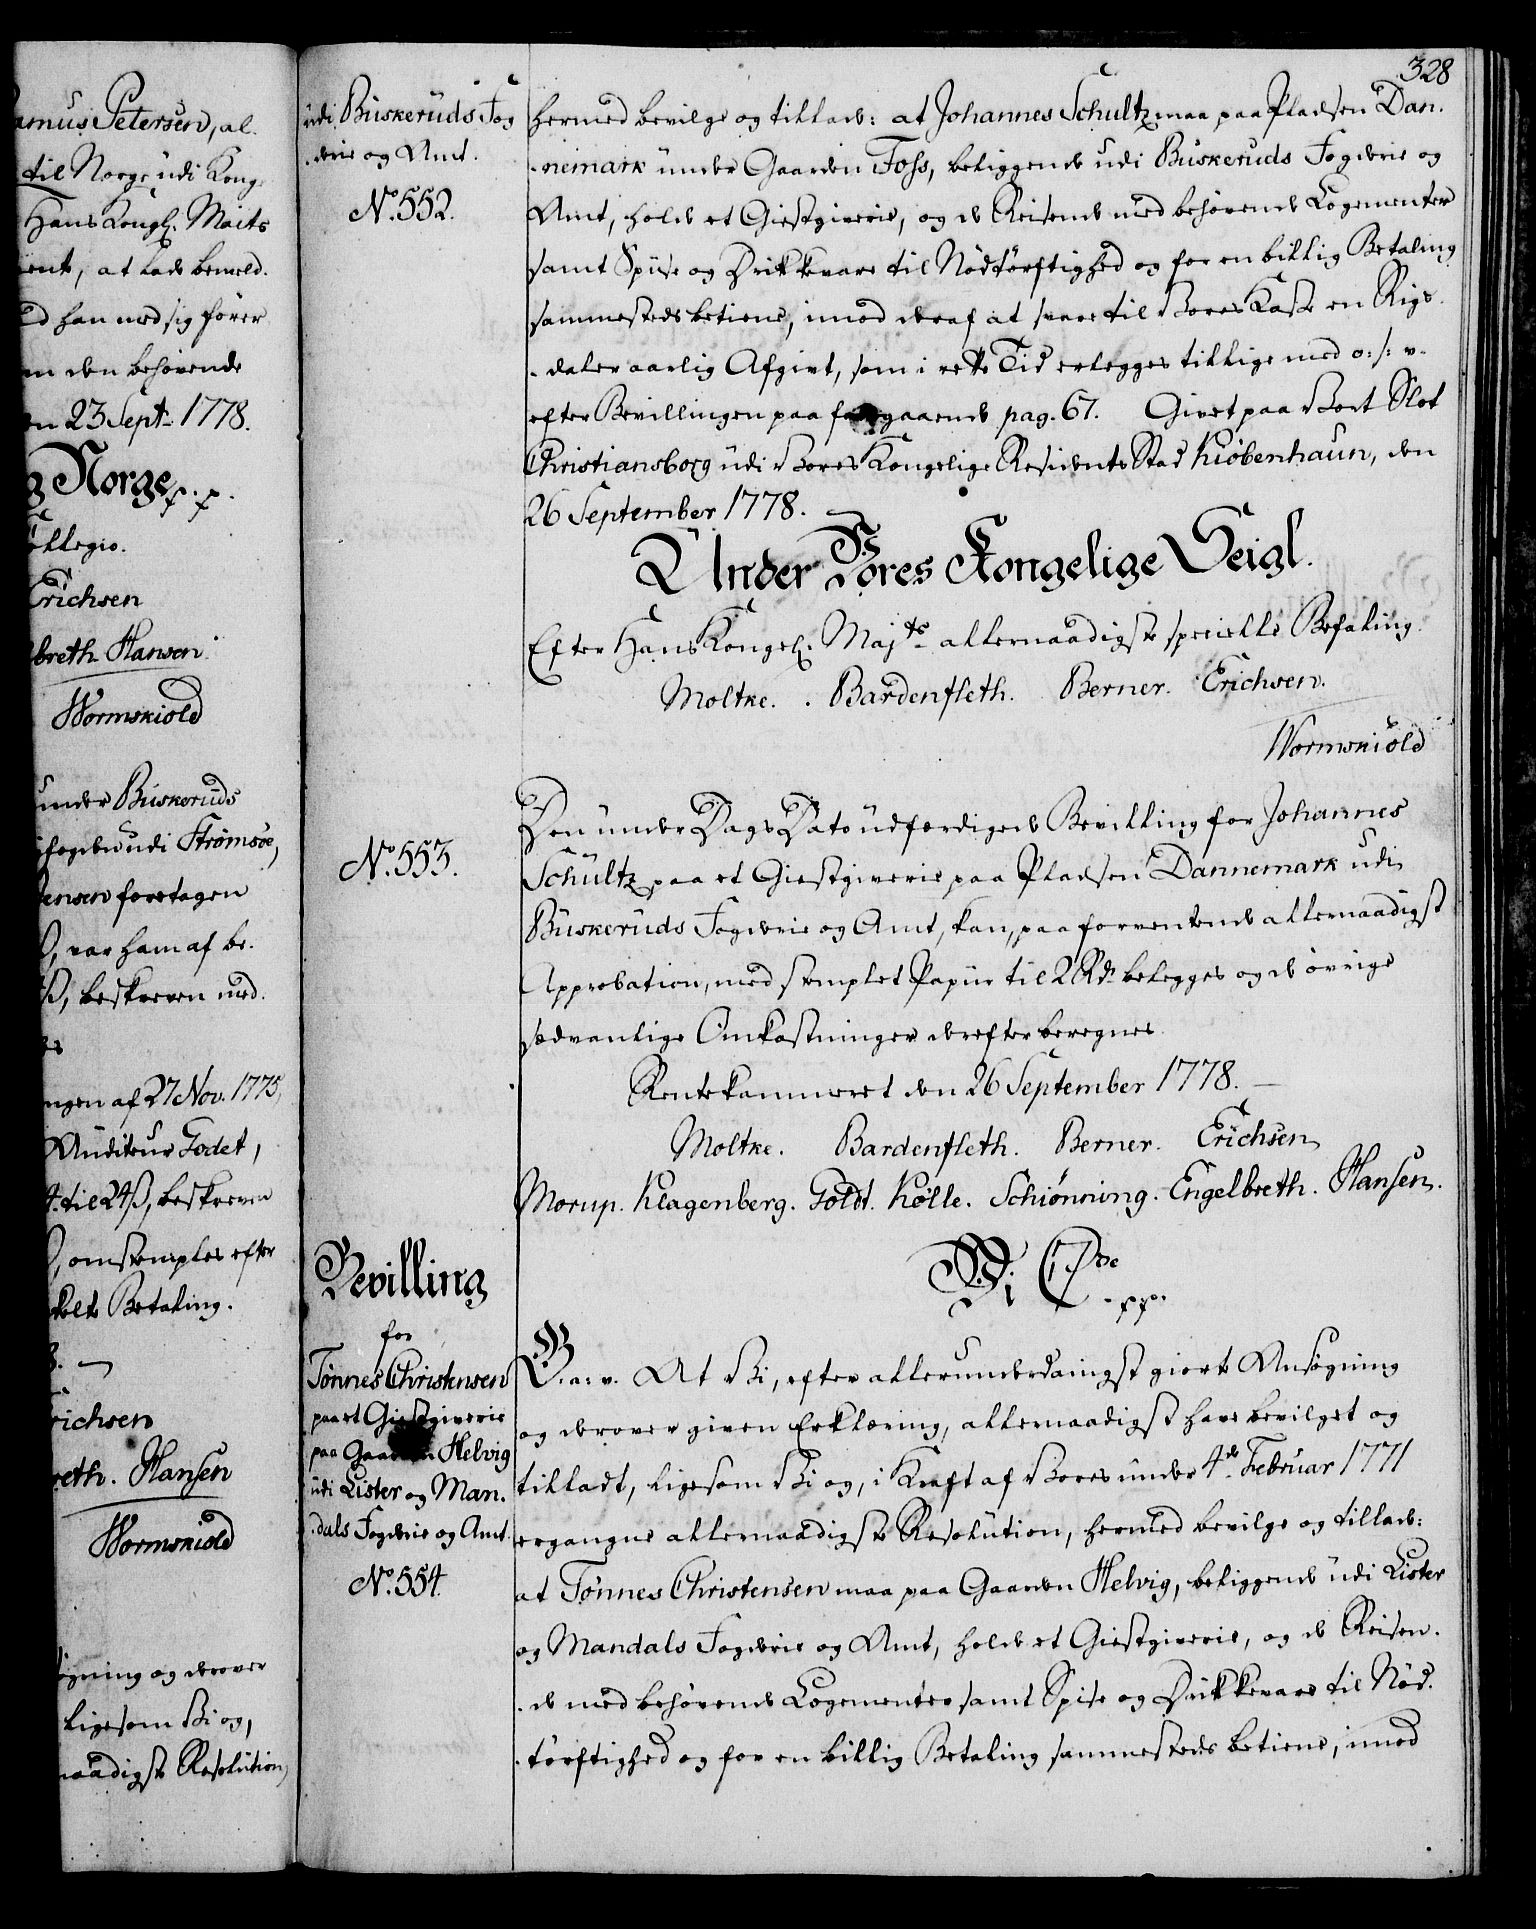 amus Petersen, al.
til Norge udi Kong
Hans Kongl. Maits
ente, at lade bemeld.
d han med sig fører
en den behøvende
en 23 Sept. 1778.
g Norge p. p.
ollegio.
Erichsen
breth Hansen.
Wormskiold
under Buskeruds
fogden udi Strømsøe,
ensen foretagen
ß, var ham af be.
ß, beskreven med.
es
ngen af 27 Nov. 1775,
Auditeur Godet,
til 24 ß, beskreven
omstemples efter
kelte Betaling.
8. —
richsen
reth. Hansen
Wormskiold
øgning og derover
ligesom Vi og,
naadigste Resolution,
udi Buskeruds Fog
derie og Amt.
No. 552.
328
hermed bevilge og tillade: at Johannes Schultz maa paa Pladsen Dan.
nemark under Gaarden Foss, beliggende udi Buskeruds Fogderie og
Amt, holde et Giestgiverie, og de Reisende med behøvende Logementer
samt Spiise og Drikkevare til Nødtørftighed og for en billig Betaling
sammesteds betiene, imod deraf at svare til Vores Kasse en Rigs
daler aarlig Afgivt, som i rette Tid erlegges tillige med o: s: v.
efter Bevillingen paa foregaaende pag. 67. Givet paa Vort Slot
Christiansborg udi Vores Kongelige Residents Stad Kiøbenhaun, den
26 September 1778.
Under Vores Kongelige Seigl.
Efter Hans Kongel. Majts allernaadigste specielle Befaling.
Moltke. Bardenfleth. Berner. Erichsen.
Wormskiold
No. 553.
Den under Dags Dato udfærdigede Bevilling for Johannes
Schultz paa et Giestgiverie paa Pladsen Dannemark udi
Buskeruds Fogderie og Amt, kan, paa forventende allernaadigst
Approbation, med stemplet Papiir til 2 Rd. belegges og de øvrige
sedvanlige Omkostninger derefter beregnes
Rentekammeret den 26 September 1778. —
Moltke. Bardenfleth. Berner. Erichsen
Morup. Klagenberg. Goldt. Kølle. Schiønning. Engelbreth. Hansen.
Bevilling
for
Tønnes Christensen
paa et Giestgiverie
paa Gaarden Helvig
udi Lister og Man.
dals Fogderie og Amt.
No. 554.
Vi C. 7de
p. p.
G. a: v. At Vi, efter allerunderdanigst giorte Ansøgning
og derover given Erklæring, allernaadigst have bevilget og
tilladt, ligesom Vi og, i Kraft af Vores under 4de Februar 1771
ergangne allernaadigste Resolution, hermed bevilge og tillade:
at Tønnes Christensen maa paa Gaarden Helvig, beliggende udi Lister
og Mandals Fogderie og Amt, holde et Giestgiverie, og de Reisen.
de med behøvende Logementer samt Spise og Drikkevare til Nød.
tørftighed og for en billig Betaling sammesteds betiene, imod